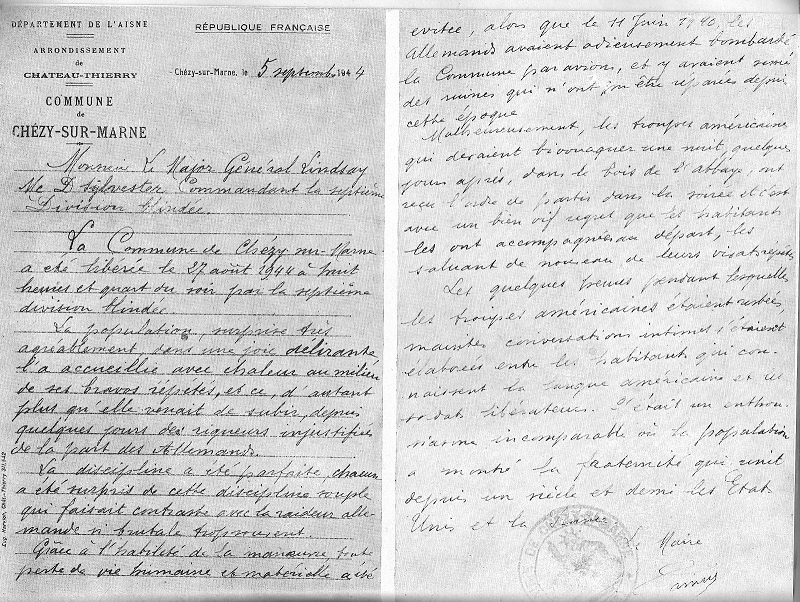 DÉPARTEMENT DE L'AISNE
ARRONDISSEMENT
de
CHATEAU-THIERRY
COMMUNE
de
CHÉZY-SUR-MARNE
RÉPUBLIQUE FRANÇAISE
Chézy-sur-Marne, le 5 septembre 1944
Monsieur Le Major Général Lindsay
Mc D Sylvester Commandant la septième
Division blindée.
La Commune de Chézy-sur-Marne
a été libérée le 27 août 1944 à huit
heures et quart du soir par la septième
division blindée.
La population, surprise très
agréablement, dans une joie délirante
l'a accueillie avec chaleur au milieu
de ses bravos répétés, et ce, d'autant
plus qu'elle venait de subir, depuis
quelques jours des rigueurs injustifiées
de la part des Allemands.
La discipline a été parfaite, chacun
a été surpris de cette discipline souple
qui faisait contraste avec la raideur alle-
mande si brutale trop souvent.
Grâce à l'habileté de la manœuvre toute
perte de vie humaine et matérielle a été
evitée, alors que le 11 Juin 1940, les
Allemands avaient odieusement bombardé
la Commune par avion, et y avaient semé
des ruines qui n'ont pu être réparées depuis
cette époque
Malheureusement, les troupes américaines
qui devaient bivouaquer une nuit, quelques
jours après, dans le bois de l'abbaye, ont
reçu l'ordre de partir dans la soirée et c'est
avec un bien vif regret que les habitants
les ont accompagnés au départ, les
saluant de nouveau de leurs vivats répétés
Les quelques heures pendant lesquelles
les troupes américaines étaient restées,
maintes conversations intimes s'étaient
élaborées entre les habitants qui con-
naissent la langue américaine et les
soldats libérateurs. C'était un enthou-
siasme incomparable où la population
a montré la fraternité qui unit
depuis un siècle et demi les Etats
Unis et la France
Le Maire